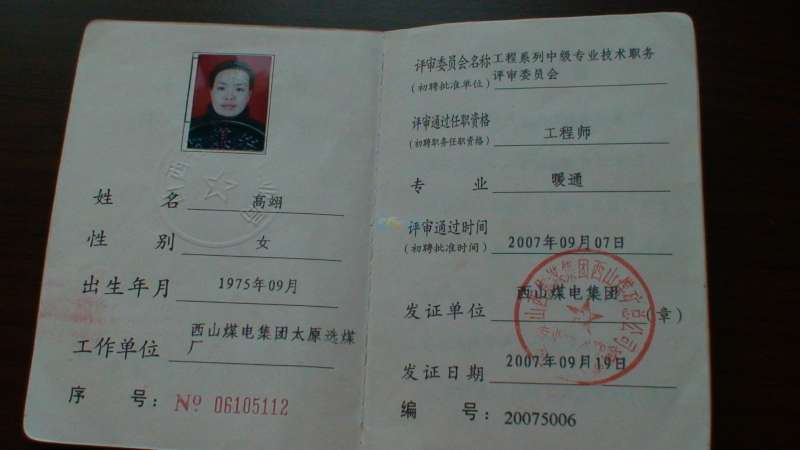 姓 名 高翊
性 别 女
出生年月 1975年09月
工作单位 西山煤电集团太原选煤
厂
序 号: № 06105112
评审委员会名称 工程系列中级专业技术职务
(初聘批准单位) 评审委员会
评审通过任职资格
(初聘职务任职资格) 工程师
专 业 暖通
评审通过时间
(初聘批准时间) 2007年09月07日
发证单位 西山煤电集团 (章)
发证日期 2007年09月19日
编 号: 20075006